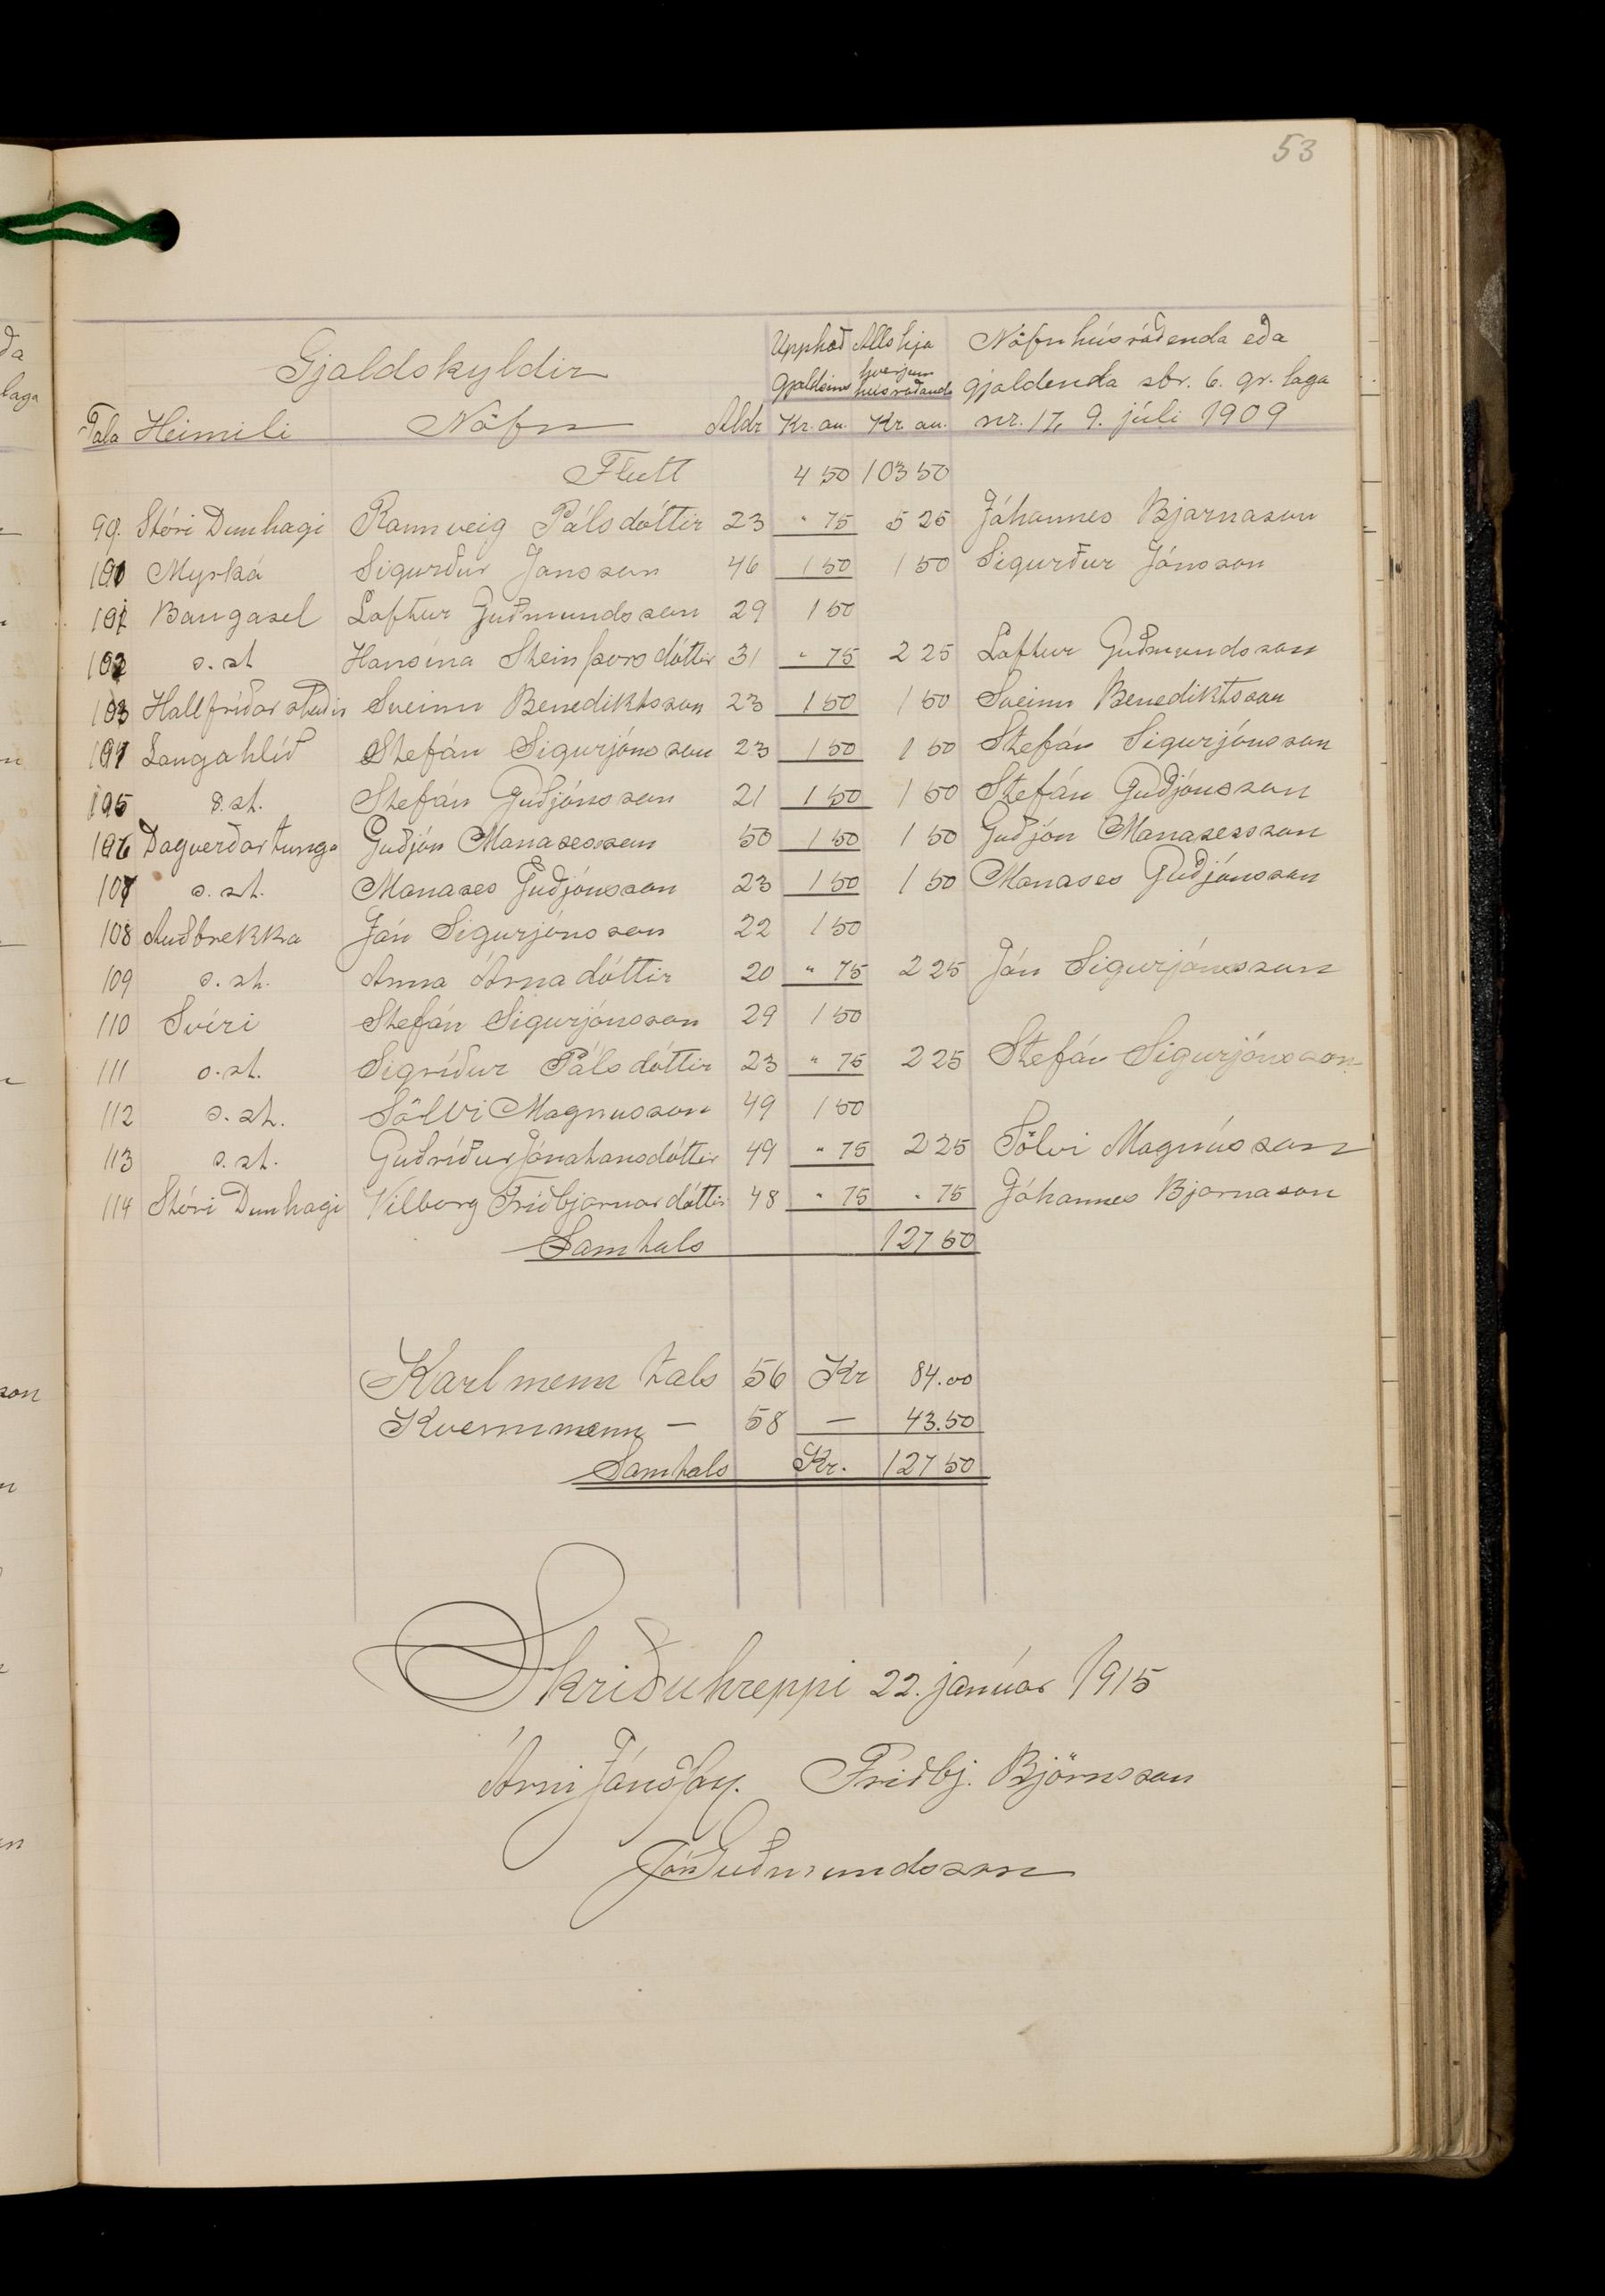 53
Gjaldskyldir Upphæð Alls hja Nöfn húsráðenda eða
gjaldsins hverjum húsráðanda gjaldenda sbr. 6. gr. laga
Tala Heimili Nöfn Aldr Kr. au. Kr au. nr. 17, 9. júli 1909
Flutt 4 50 103 50
99. Stóri Dunhagi Rannveig Pálsdóttir 23 " 75 5 25 Jóhannes Bjarnason
Myrká Sigurður Jónsson 46 1 50 1 50 Sigurður Jónsson
Baugasel Loftur Guðmundsson 29 1 50
102 s. st Hansína Steinþorsdóttir 31 " 75 2 25 Loftur Guðmundsson
103 Hallfríðarstaðir Sveinn Benediktsson 23 1 50 1 50 Sveinn Benediktsson
Langahlíð Stefán Sigurjónsson 23 1 50 1 50 Stefán Sigurjónsson
105 s. st. Stefán Guðjónsson 21 1 50 1 50 Stefán Guðjónsson
106 Dagverðartunga Guðjón Manasesson 50 1 50 1 50 Guðjón Manasesson
107 s. st. Manases Guðjónsson 23 1 50 1 50 Manases Guðjónsson
108 Auðbrekka Jón Sigurjónsson 22 1 50
109 s. st. Anna Árnadóttir 20 " 75 2 25 Jón Sigurjónsson
110 Svíri Stefán Sigurjónsson 29 1 50
111 s. st. Sigríður Pálsdóttir 23 " 75 2 25 Stefán Sigurjónsson
112 s. st. Sölvi Magnusson 49 1 50
113 s. st. Guðríður Jónatansdóttir 49 " 75 2 25 Sölvi Magnússon
114 Stóri Dunhagi Vilborg Friðbjarnardóttir 48 " 75 " 75 Jóhannes Bjarnason
Samtals 127 50
Karlmenn tals 56 Kr 84.00
Kvennmenn — 58 — 43.50
Samtals Kr. 127 50
Skriðuhreppi 22. janúar 1915
Árni Jónsson. Friðbj. Björnsson
Jón Guðmundsson